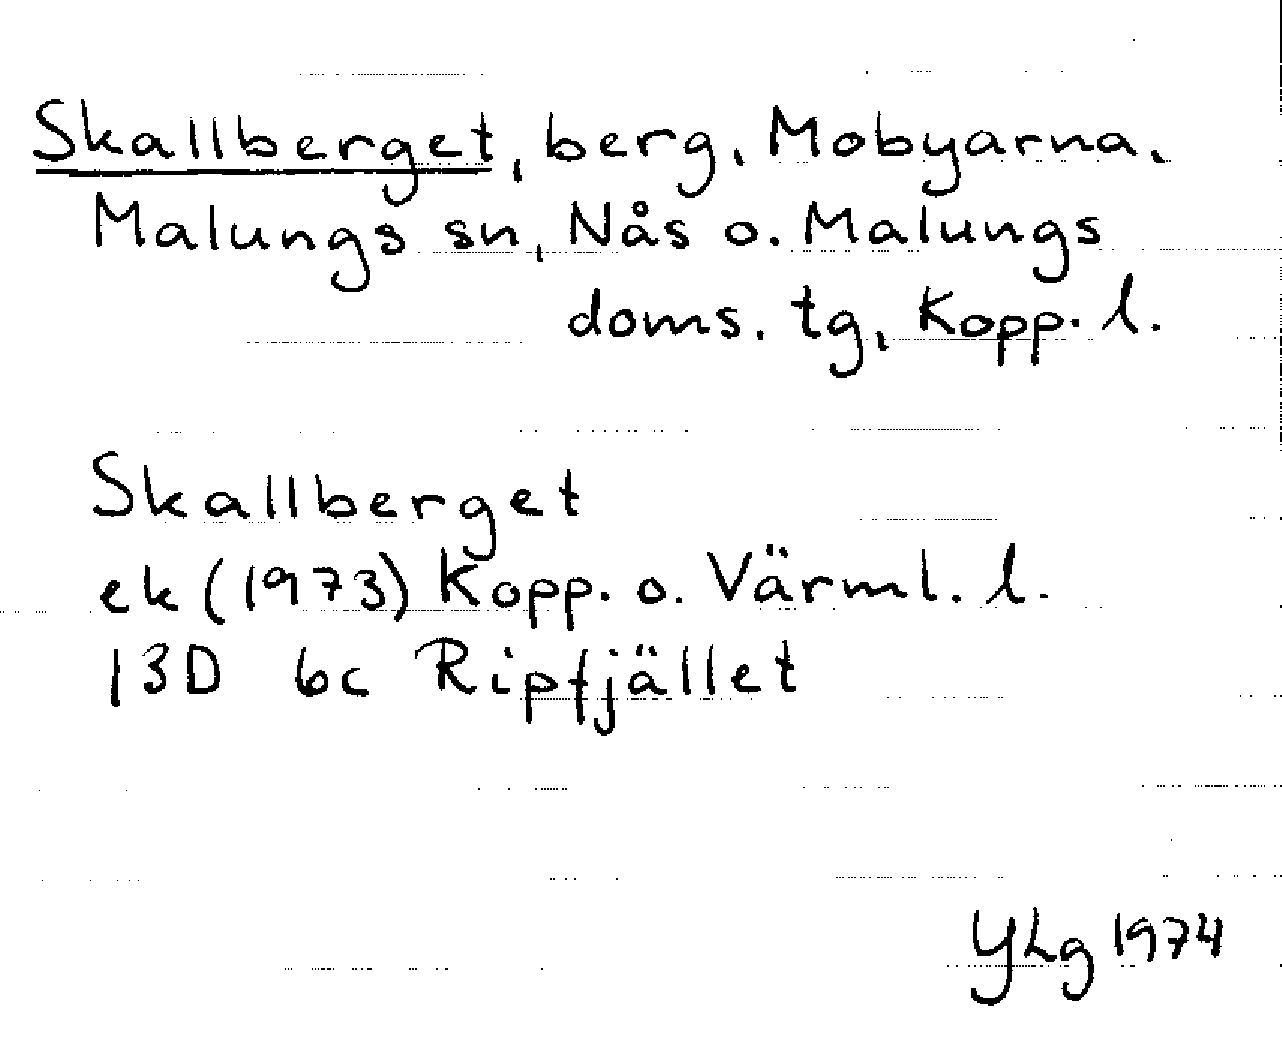 Skallberget, berg, Mobyarna,
Malungs sn, Nås o. Malungs
doms. tg, Kopp. l.
Skallberget
ek (1973) Kopp. o. Värml. l.
13D 6c Ripfjället
YLg 1974